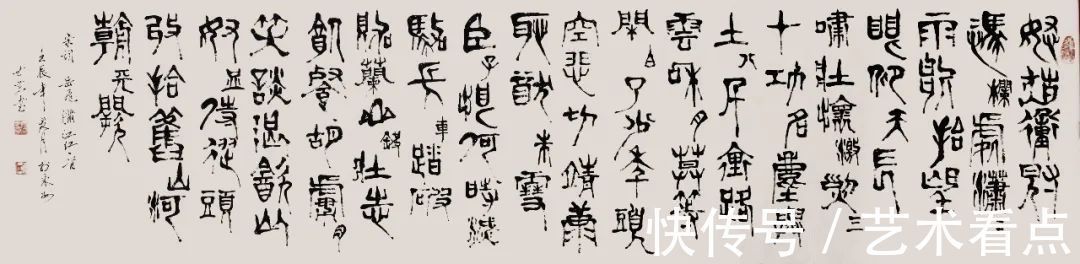 怒髮衝冠
憑欄處瀟=
雨歇抬望
眼仰天長
嘯壯懷激烈三
十功名塵與
土八千里路
雲和月莫等
閑白了少年頭
空悲切靖康
恥猶未雪
臣子恨何時滅
駕長車踏破
賀蘭山缺壯志
飢餐胡虜肉
笑談渴飲匈
奴血待從頭
收拾舊山河
朝天闕
宋詞岳飛滿江紅
壬辰年春月於
快传号 / 艺术看点